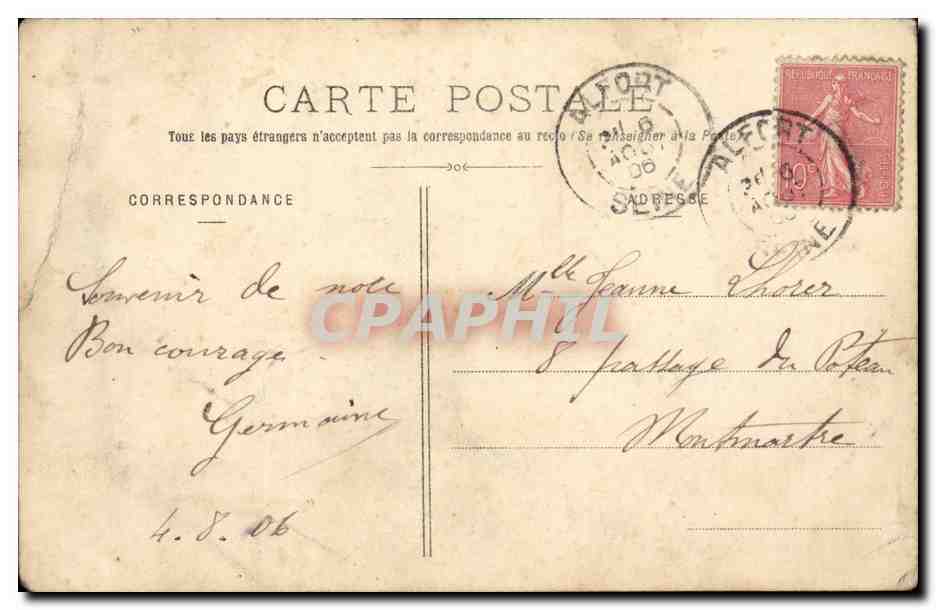 CARTE POSTALE
Tous les pays étrangers n'acceptent pas la correspondance au recto (Se renseigner à la Poste)
CORRESPONDANCE
ADRESSE
RÉPUBLIQUE FRANÇAISE
ALFORT
6
AOUT
06
SEINE
ALFORT
Souvenir de
Bon courage
Germaine
4.8.06
Mlle Jeanne Lhorer
8 passage du Poteau
Montmartre
CPAPHIL